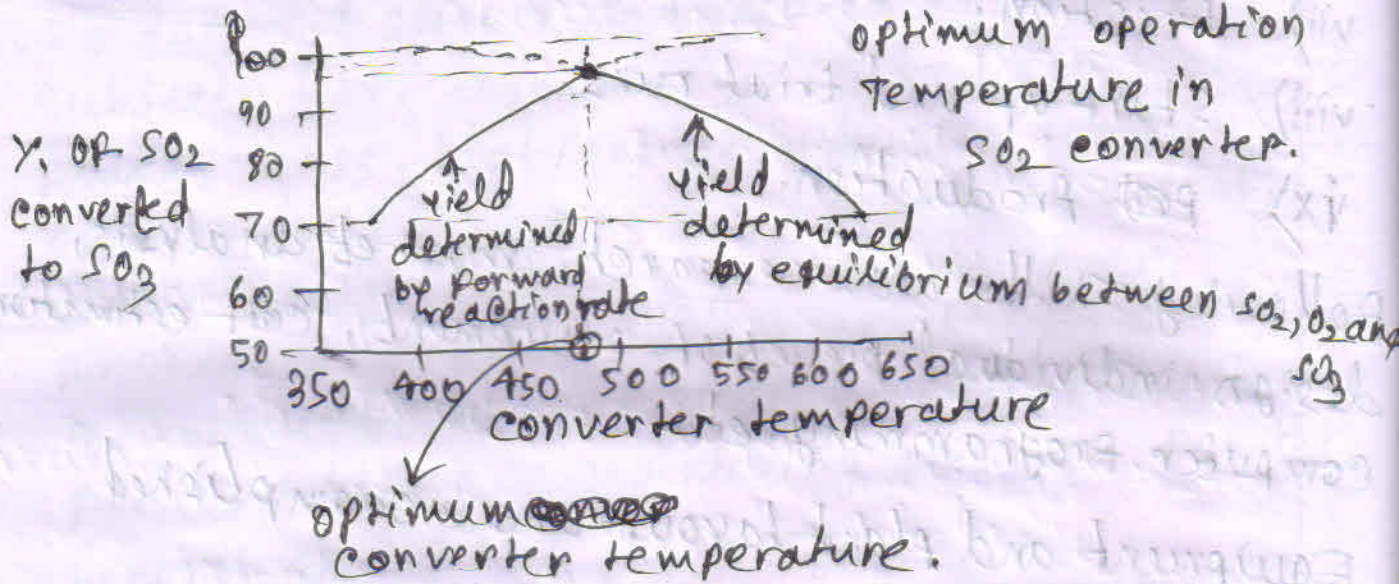 optimum operation
temperature in
SO2 converter.
100
90
80
70
60
50
Y. OF SO2
converted
to SO3
yield
determined
by forward
reaction rate
yield
determined
by equilibrium between SO2, O2 and
SO3
350 400 450 500 550 600 650
converter temperature
optimum
converter temperature.